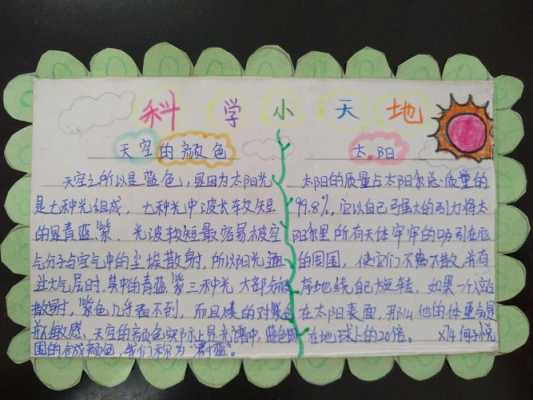 科学小天地
天空的颜色
天空之所以是蓝色,是因为太阳光
是七种光组成,七种光中波长较短
的是青蓝紫,光波较短最容易被空
气分子与空气中的尘埃散射,所以阳光
过大气层时,其中的青蓝紫三种光大部分被
散射,紫色几乎看不到,而且
敏感,天空的颜色实际上是光谱中,蓝色
围的合成颜色,我们称为"蔚蓝"。
太阳
太阳的质量占太阳系总质量的
99.8%,它以自己强大的引力将太
阳系里所有天体牢牢的吸引在
的周围,使它们不离不散,并有
序地绕自己旋转,如果一个人站
在太阳表面,那么他的体重会是
在地球上的20倍。